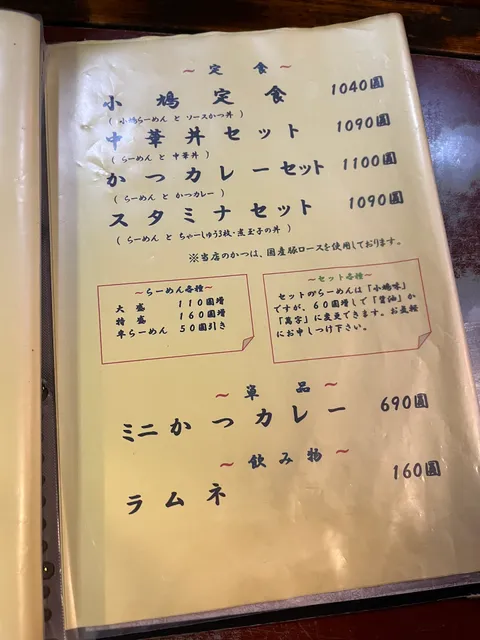 ～ 定食 ～
小鳩定食 1040圓
( 小鳩らーめん と ソースかつ丼 )
中華丼セット 1090圓
( らーめん と 中華丼 )
かつカレーセット 1100圓
( らーめん と かつカレー )
スタミナセット 1090圓
( らーめん と ちゃーしゅう3枚・煮玉子の丼 )
※当店のかつは、国産豚ロースを使用しております。
～らーめん各種～
大盛 110圓増
特盛 160圓増
半らーめん 50圓引き
～セット各種～
セットのらーめんは「小鳩味」
ですが、60圓増しで「醤油」か
「萬字」に変更できます。お気軽
にお申しつけ下さい。
～ 単品 ～
ミニかつカレー 690圓
～ 飲み物 ～
ラムネ 160圓